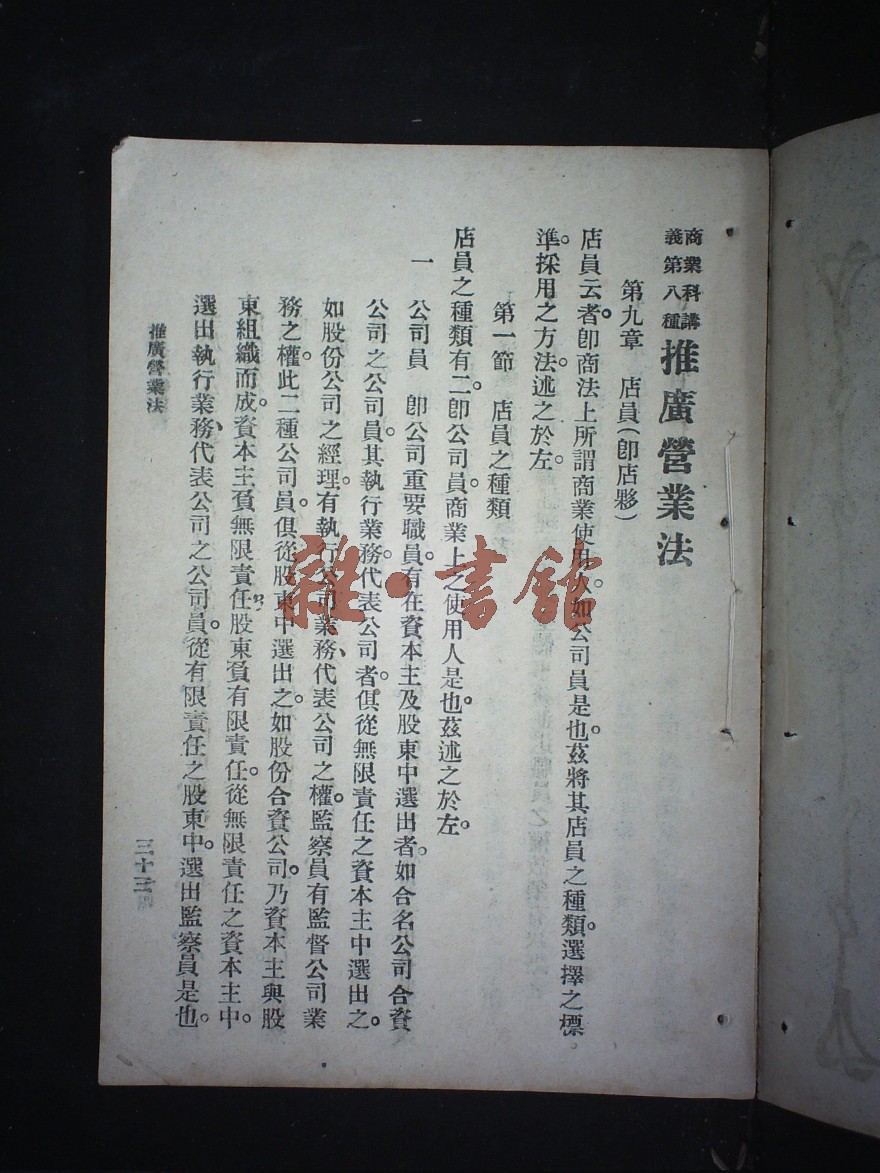 商業科講
義第八種
推廣營業法
第九章　店員(卽店夥)
店員云者。卽商法上所謂商業使用人。如公司員是也。茲將其店員之種類。選擇之標
準。採用之方法。述之於左。
第一節　店員之種類
店員之種類有二。卽公司員。商業上之使用人是也。茲述之於左。
一　公司員　卽公司重要職員。有在資本主及股東中選出者。如合名公司合資
公司之公司員。其執行業務。代表公司者。俱從無限責任之資本主中選出之。
如股份公司之經理。有執行公司業務、代表公司之權。監察員有監督公司業
務之權。此二種公司員。俱從股東中選出之。如股份合資公司。乃資本主與股
東組織而成。資本主負無限責任。股東負有限責任。從無限責任之資本主中。
選出執行業務、代表公司之公司員。從有限責任之股東中。選出監察員是也。
推廣營業法
三十三
雜·書館